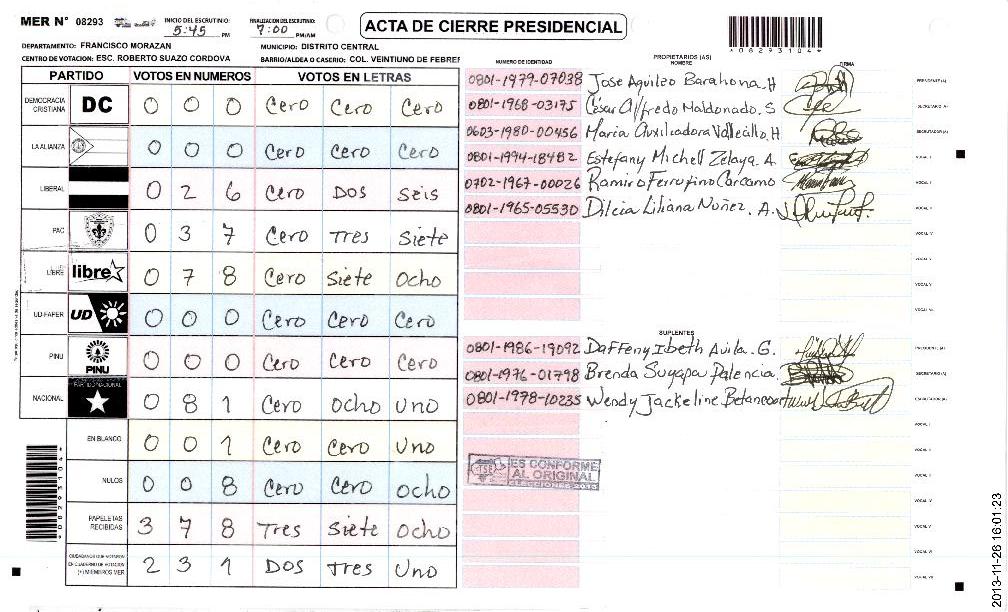 MER N° 08293
INICIO DEL ESCRUTINIO:
5:45 PM
FINALIZACION DEL ESCRUTINIO:
7:00 PM/AM
ACTA DE CIERRE PRESIDENCIAL
*08293104*
DEPARTAMENTO: FRANCISCO MORAZAN
MUNICIPIO: DISTRITO CENTRAL
CENTRO DE VOTACION: ESC. ROBERTO SUAZO CORDOVA
BARRIO/ALDEA O CASERIO: COL. VEINTIUNO DE FEBRER
PARTIDO VOTOS EN NUMEROS VOTOS EN LETRAS
DEMOCRACIA CRISTIANA DC 0 0 0 Cero Cero Cero
LA ALIANZA 0 0 0 Cero Cero Cero
LIBERAL 0 2 6 Cero Dos Seis
PAC 0 3 7 Cero Tres Siete
LIBRE libre 0 7 8 Cero Siete Ocho
UD-FAPER UD 0 0 0 Cero Cero Cero
PINU PINU 0 0 0 Cero Cero Cero
NACIONAL PARTIDO NACIONAL 0 8 1 Cero Ocho Uno
EN BLANCO 0 0 1 Cero Cero Uno
NULOS 0 0 8 Cero Cero Ocho
PAPELETAS RECIBIDAS 3 7 8 Tres Siete Ocho
CIUDADANOS QUE VOTARON EN CUADERNO DE VOTACION (+) MIEMBROS MER 2 3 1 Dos Tres Uno
NUMERO DE IDENTIDAD
PROPIETARIOS (AS)
NOMBRE
FIRMA
0801-1979-07038 Jose Aquileo Barahona. H PRESIDENTE (A)
0801-1968-03175 César Alfredo Maldonado. S SECRETARIO (A)
0603-1980-00456 Maria Auxiliadora Vallecillo. H. ESCRUTADOR (A)
0801-1994-18482 Estefany Michell Zelaya. A. VOCAL I
0702-1967-00026 Ramiro Ferrufino Carcamo VOCAL II
0801-1965-05530 Dilcia Liliana Nuñez. A. VOCAL III
VOCAL IV
VOCAL V
VOCAL VI
SUPLENTES
0801-1986-19092 Daffeny Ibeth Avila. G. PRESIDENTE (A)
0801-1976-01798 Brenda Suyapa Palencia. SECRETARIO (A)
0801-1978-10235 Wendy Jackeline Betancourt ESCRUTADOR (A)
VOCAL I
VOCAL II
VOCAL III
VOCAL IV
VOCAL V
VOCAL VI
VOCAL VII
TSE
ES CONFORME
AL ORIGINAL
ELECCIONES 2013
*08293104*
2013-11-26 16:01:23